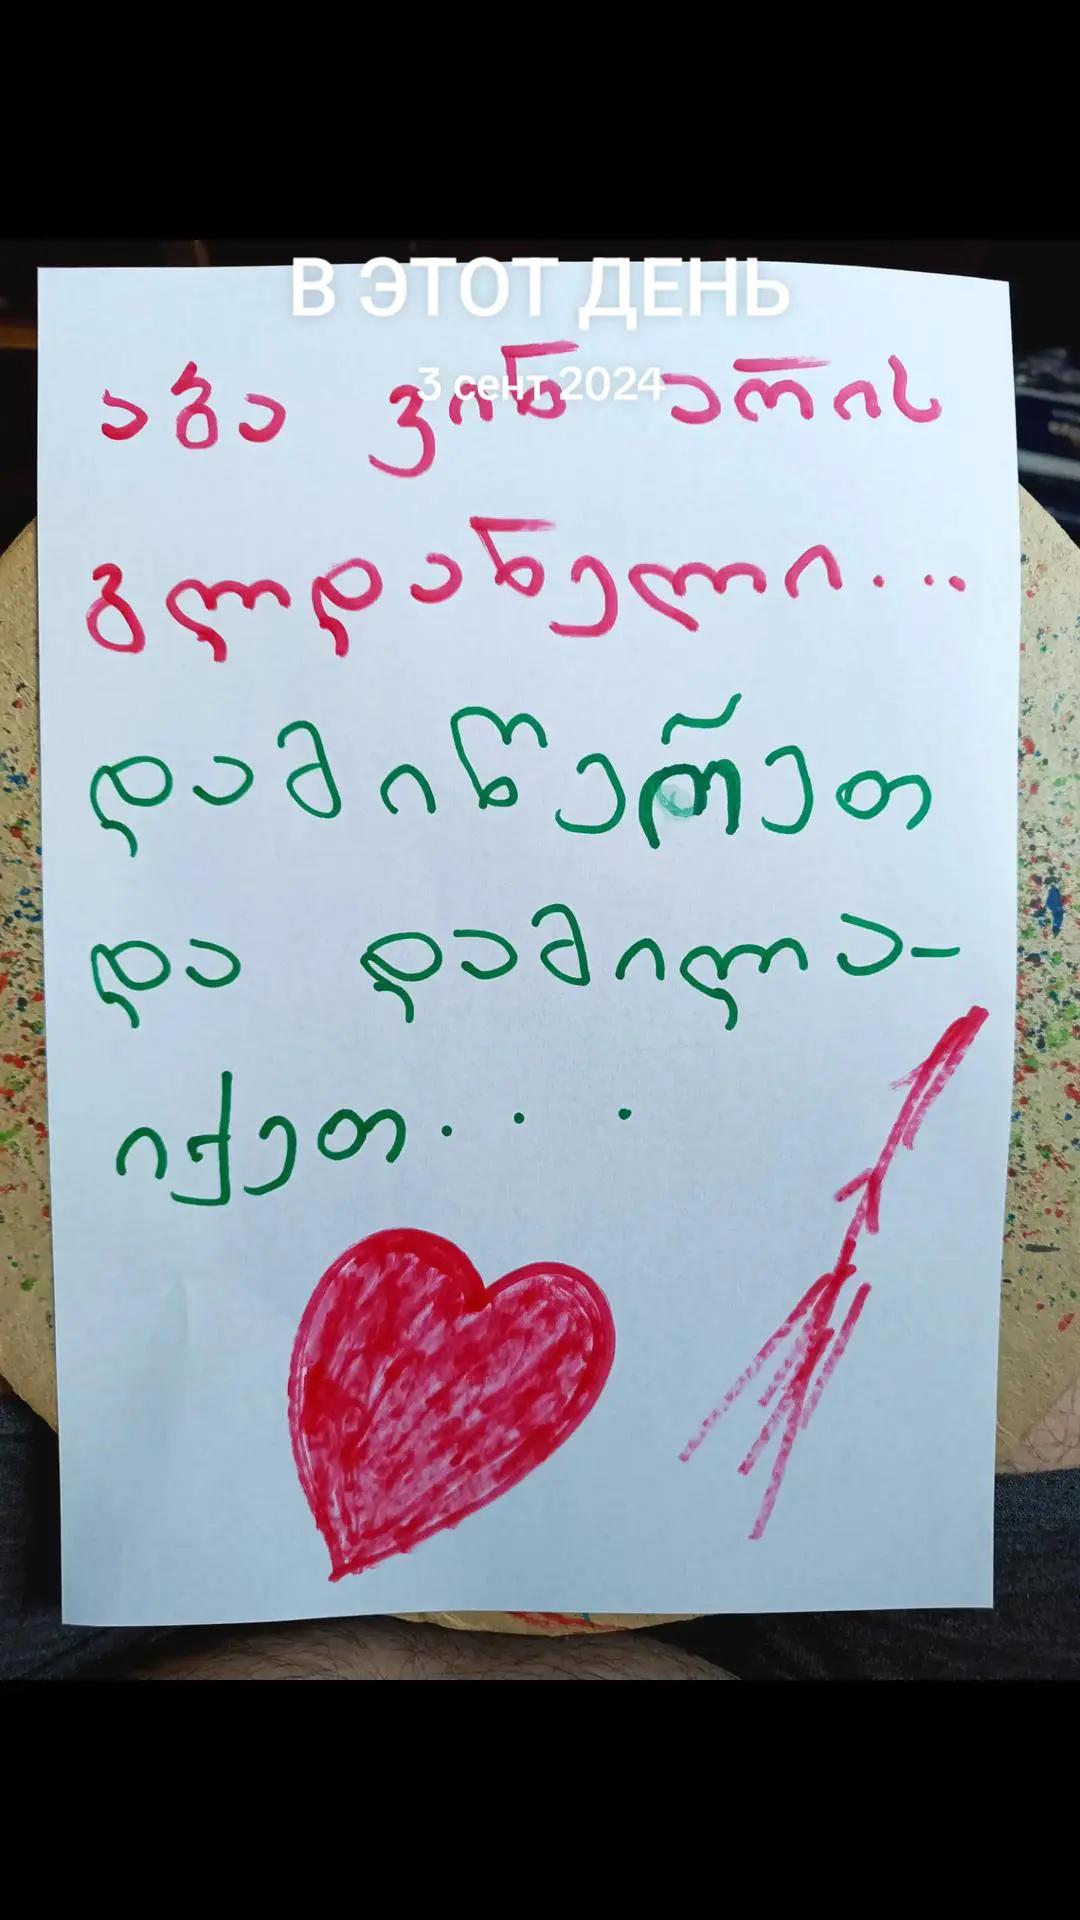 В ЭТОТ ДЕНЬ
3 сент 2024
აბა ვინ არის
გლდანელი...
დამიწერეთ
და დამილა-
იქეთ...